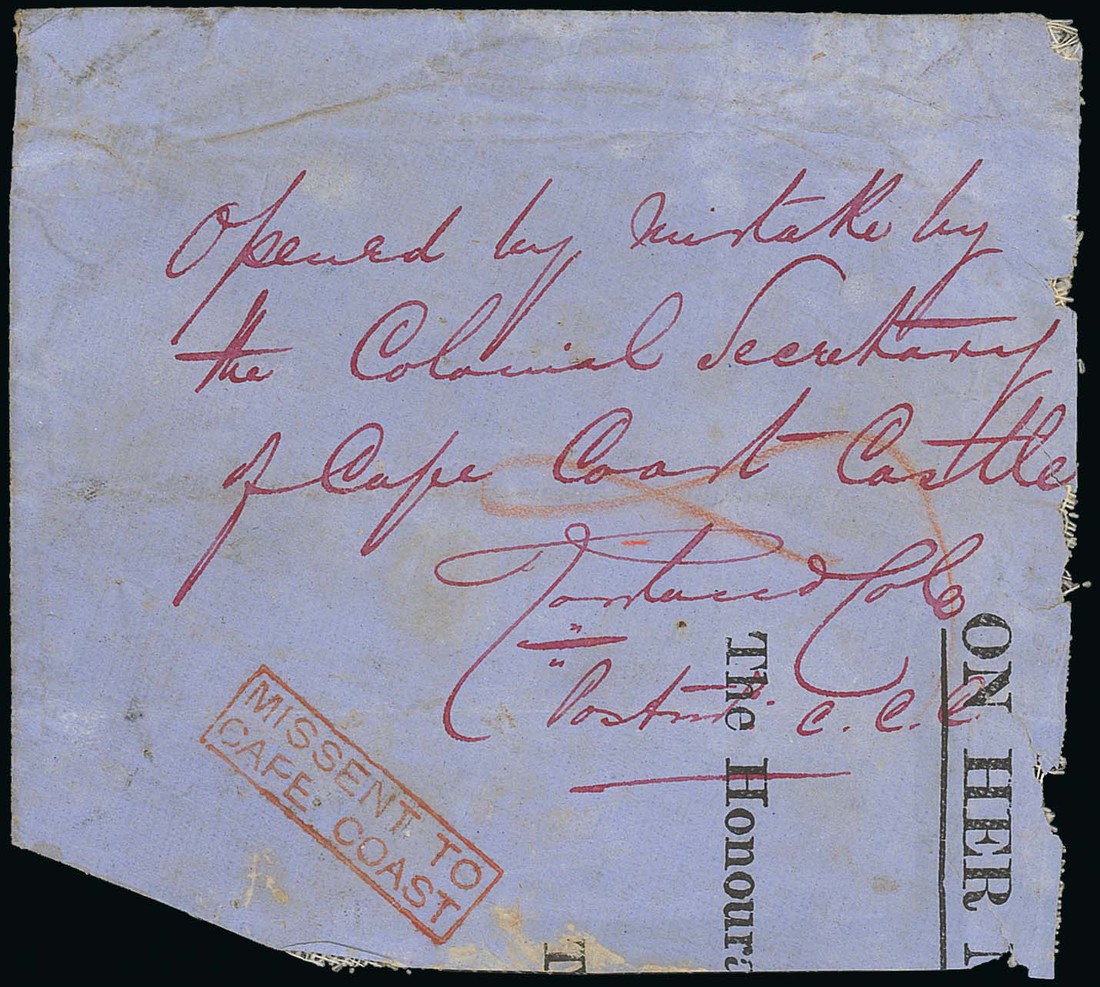 Opened by Mistake by
the Colonial Secretary
of Cape Coast Castle
Cole
" Postmr. C.C.C.
MISSENT TO
CAPE COAST
ON HER
The Honoura
T